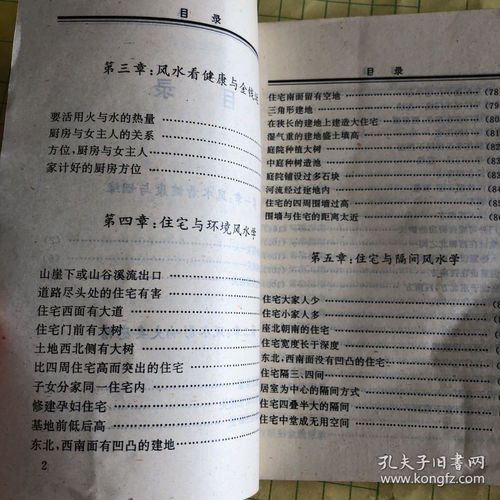 目 录
第三章：风水看健康与金钱
要活用火与水的热量
厨房与女主人的关系
方位，厨房与女主人
家计好的厨房方位
第四章：住宅与环境风水学
山崖下或山谷溪流出口
道路尽头处的住宅有害
住宅西面有大道
住宅门前有大树
土地西北侧有大树
比四周住宅高而突出的住宅
子女分家同一住宅内
修建孕妇住宅
基地前低后高
东北，西南面有凹凸的建地
2
目 录
住宅南面留有空地 (78
三角形建地
在狭长的建地上建造大住宅
湿气重的建地盛土填高
庭院种植大树
中庭种树造池
庭院铺设过多石块
河流经过建地内
住宅的四周围墙过高
围墙与住宅的距离太近
第五章：住宅与隔间风水学
住宅大家人少
住宅小家人多
座北朝南的住宅
住宅宽度长于深度
东北，西南面没有凹凸的住宅
住宅隔三、四间
居室为中心的隔间方式
住宅四叠半大的隔间
住宅中堂成无用空间
孔夫子旧书网
www.kongfz.com